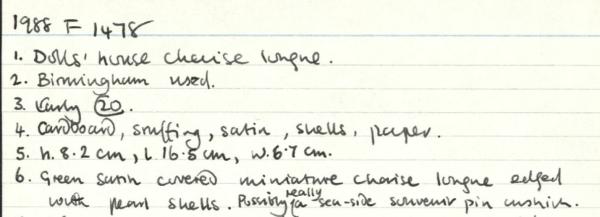 1988 F 1478
1. Dolls' house chaise longue.
2. Birmingham used.
3. Early 20.
4. Cardboard, stuffing, satin, shells, paper.
5. h. 8.2 cm, l. 16.5 cm, w. 6.7 cm.
6. Green satin covered miniature chaise longue edged
with pearl shells. Possibly really a sea-side souvenir pin cushion.